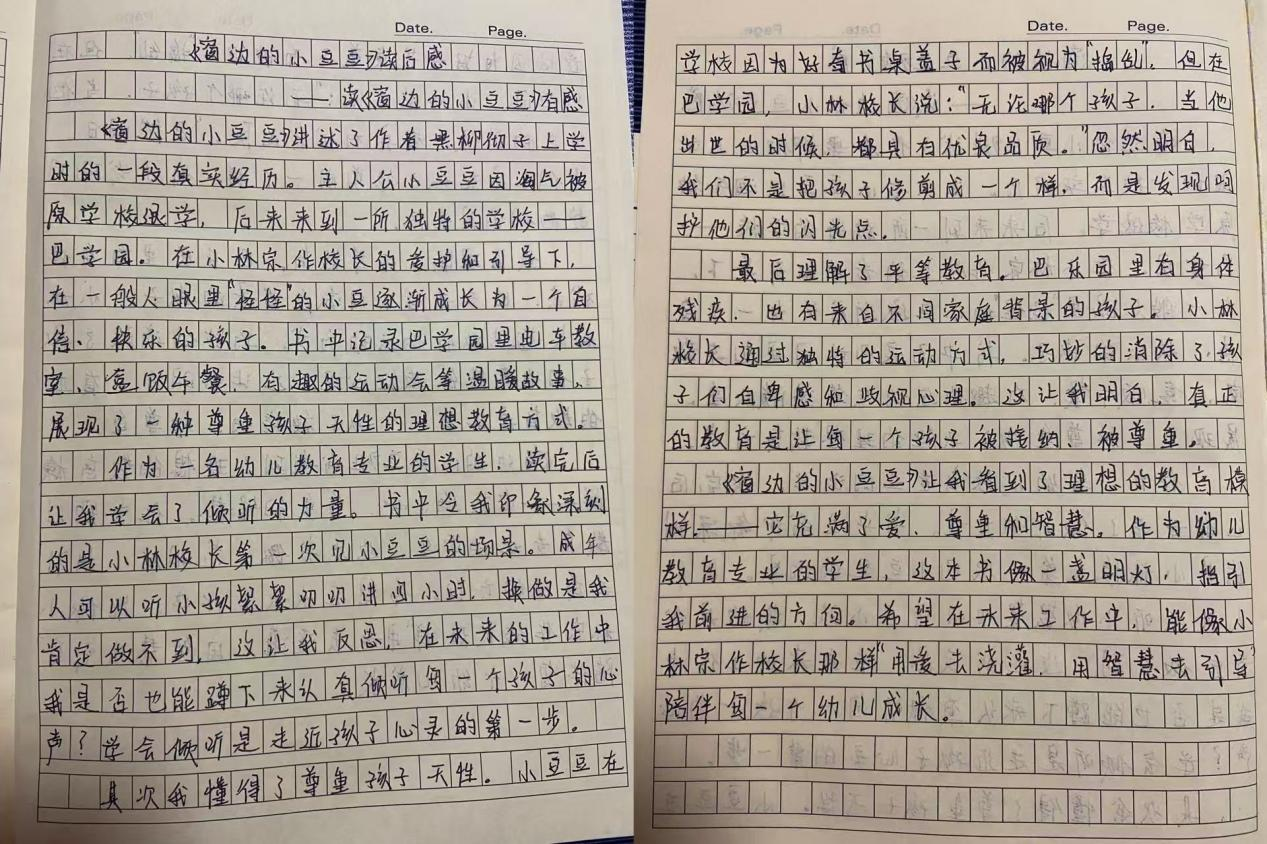 Date. Page.
《窗边的小豆豆》读后感
——读《窗边的小豆豆》有感
《窗边的小豆豆》讲述了作者黑柳彻子上学
时的一段真实经历。主人公小豆豆因淘气被
原学校退学，后来来到一所独特的学校——
巴学园。在小林宗作校长的爱护和引导下，
在一般人眼里“怪怪”的小豆逐渐成长为一个自
信、快乐的孩子。书中记录巴学园里电车教
室、盒饭午餐、有趣的运动会等温暖故事，
展现了一种尊重孩子天性的理想教育方式。
作为一名幼儿教育专业的学生，读完后
让我学会了倾听的力量。书中令我印象深刻
的是小林校长第一次见小豆豆的场景。成年
人可以听小孩絮絮叨叨讲四小时，换做是我
肯定做不到，这让我反思，在未来的工作中
我是否也能蹲下来认真倾听每一个孩子的心
声？学会倾听是走近孩子心灵的第一步。
其次我懂得了尊重孩子天性。小豆豆在
Date. Page.
学校因为好奇书桌盖子而被视为“捣乱”，但在
巴学园，小林校长说：“无论哪个孩子，当他
出世的时候，都具有优良品质。”忽然明白，
我们不是把孩子修剪成一个样，而是发现呵
护他们的闪光点。
最后理解了平等教育。巴乐园里有身体
残疾、也有来自不同家庭背景的孩子。小林
校长通过独特的运动方式，巧妙的消除了孩
子们自卑感和歧视心理。这让我明白，真正
的教育是让每一个孩子被接纳、被尊重。
《窗边的小豆豆》让我看到了理想的教育模
样——它充满了爱、尊重和智慧。作为幼儿
教育专业的学生，这本书像一盏明灯，指引
我前进的方向。希望在未来工作中，能像小
林宗作校长那样“用爱去浇灌，用智慧去引导”
陪伴每一个幼儿成长。